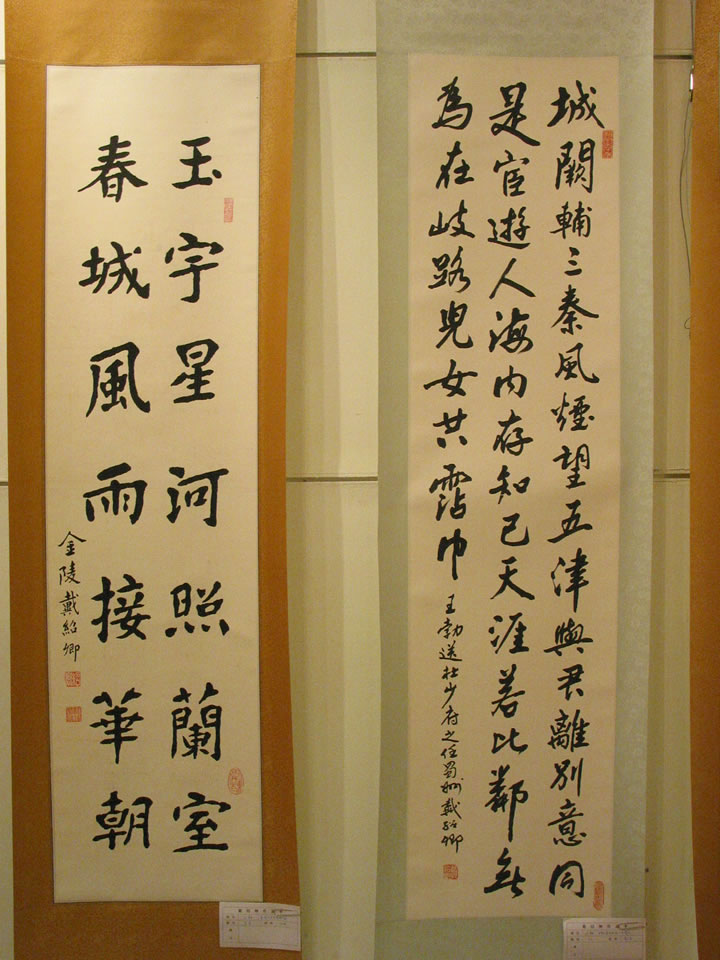 城闕輔三秦風煙望五津與君離別意同
是宦遊人海内存知己天涯若比鄰無
為在岐路兒女共霑巾
王勃送杜少府之任蜀州戴紹卿
玉宇星河照蘭室
春城風雨接華朝
金陵戴紹卿